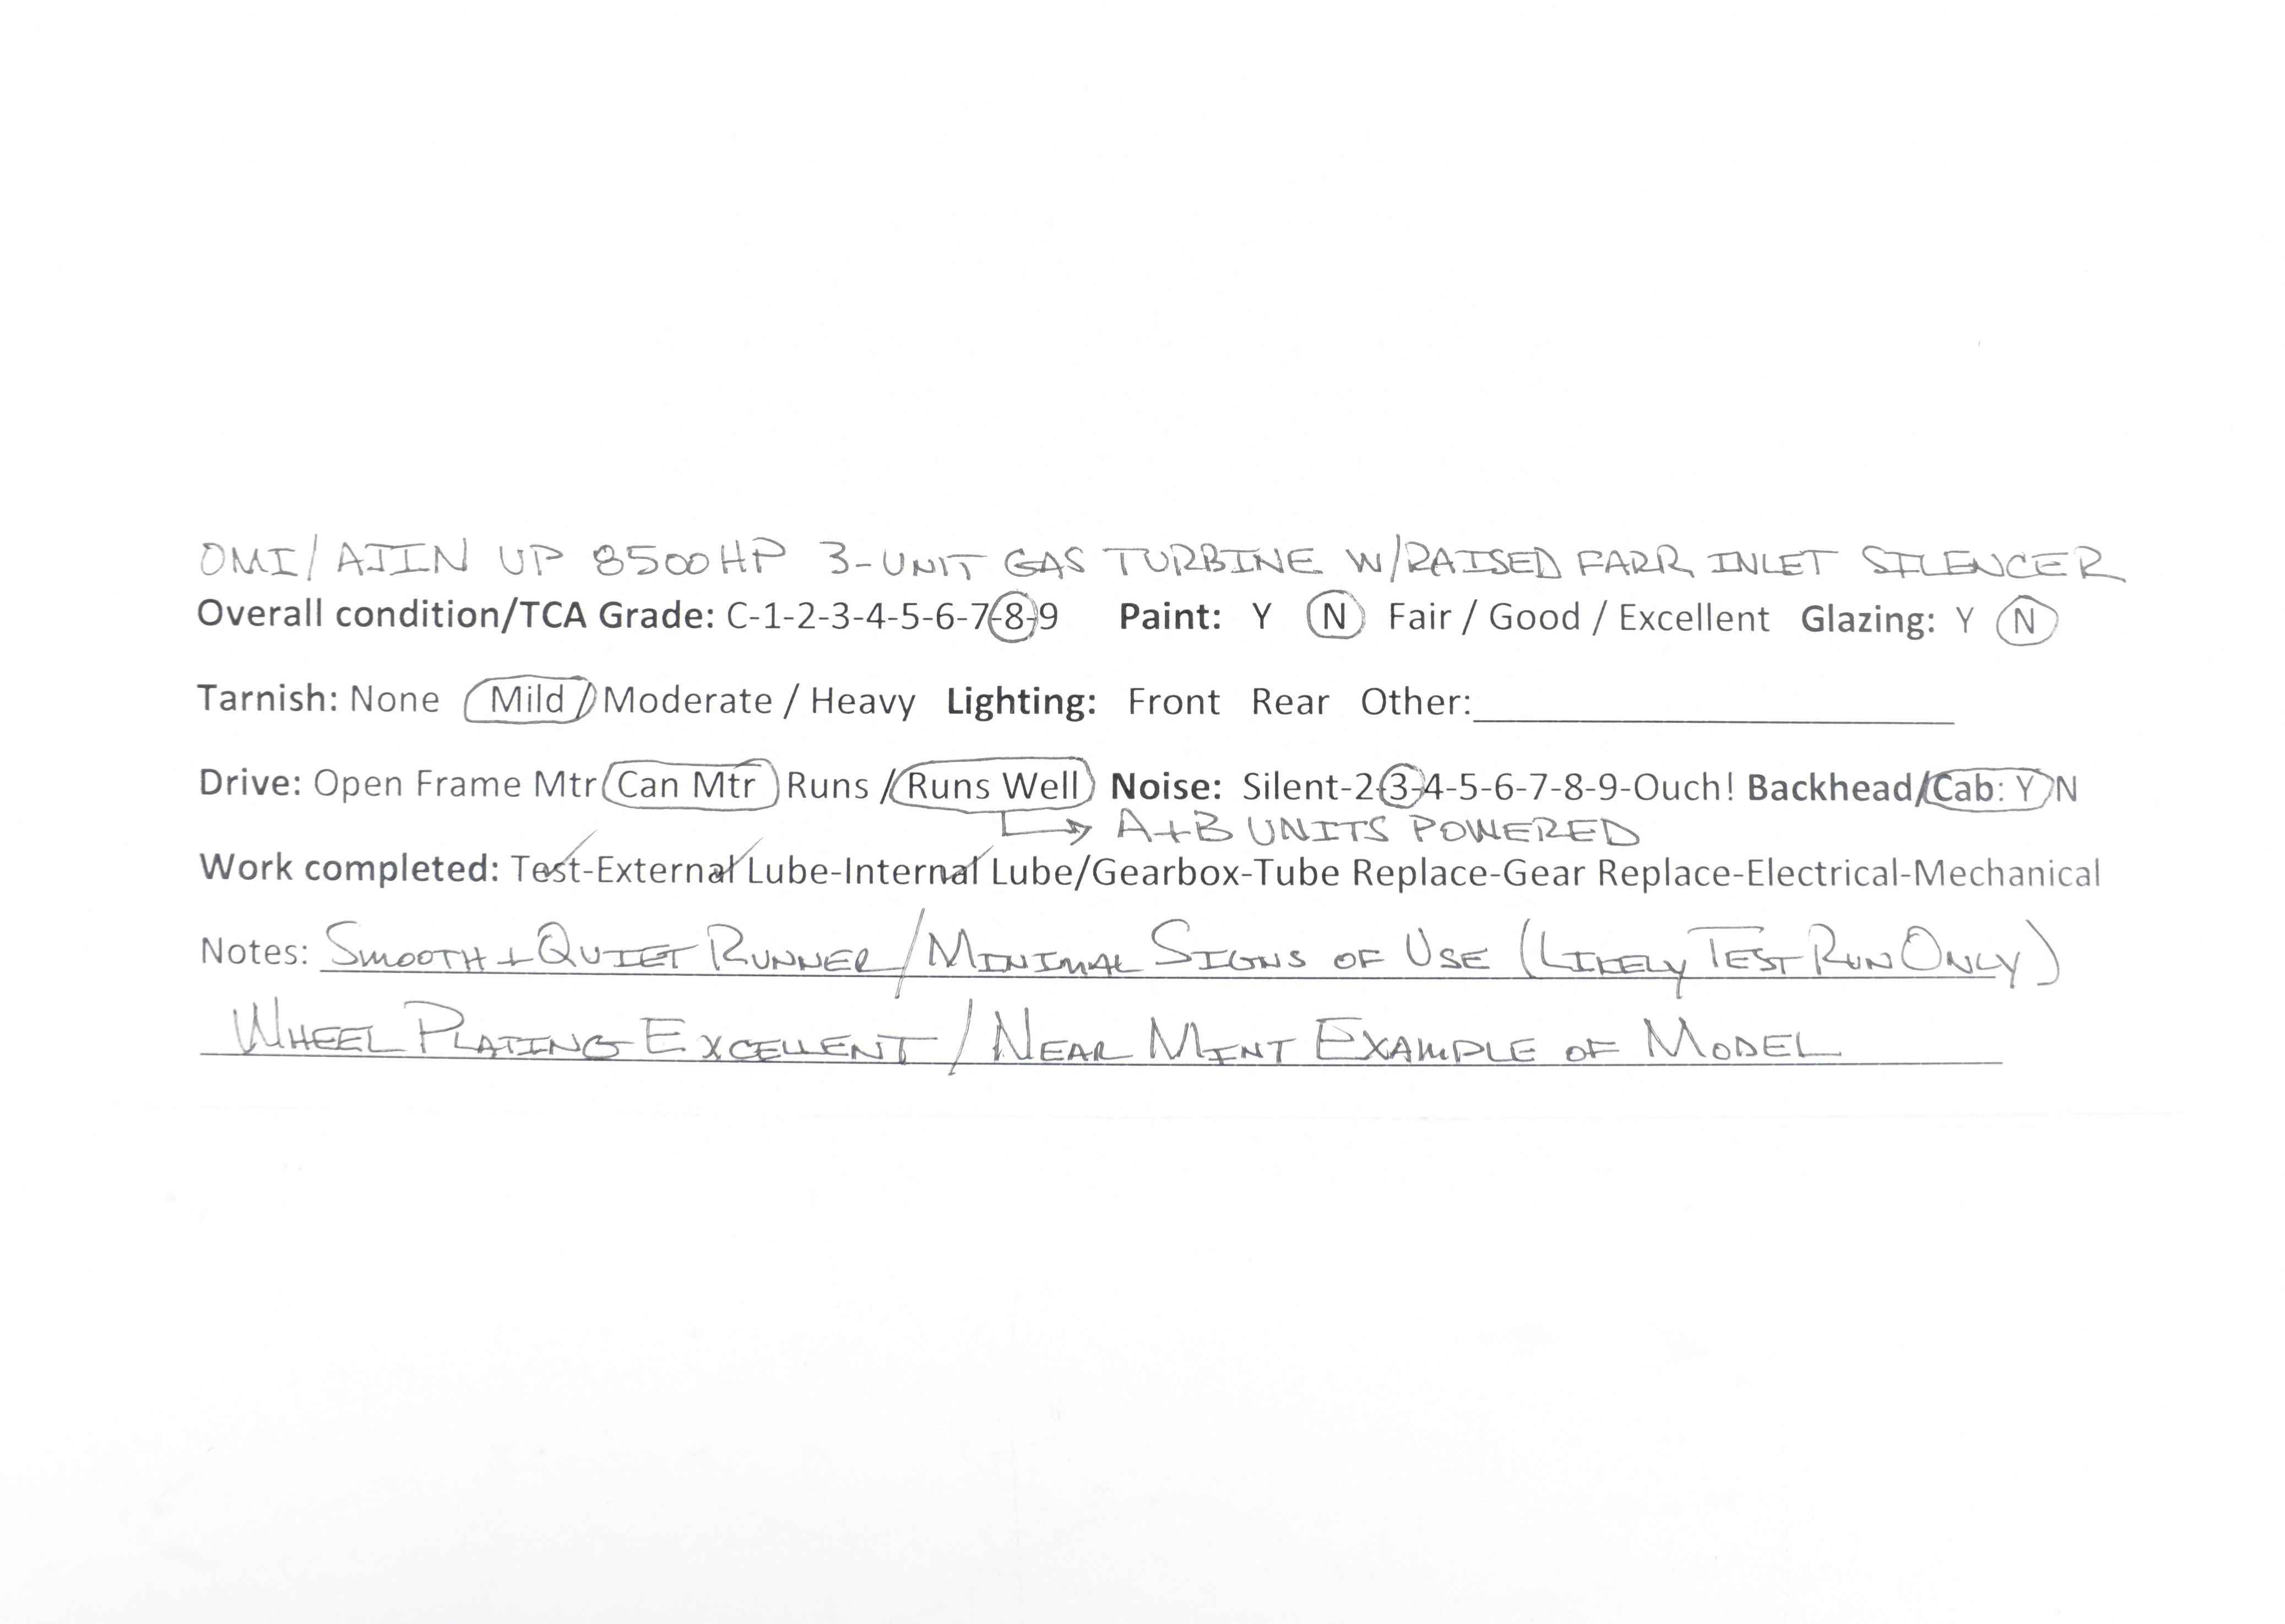 OMI/AJIN UP 8500HP 3-UNIT GAS TURBINE W/RAISED FARR INLET SILENCER
Overall condition/TCA Grade: C-1-2-3-4-5-6-7-8-9 Paint: Y N Fair / Good / Excellent Glazing: Y N
Tarnish: None Mild / Moderate / Heavy Lighting: Front Rear Other:
Drive: Open Frame Mtr Can Mtr Runs / Runs Well Noise: Silent-2-3-4-5-6-7-8-9-Ouch! Backhead/Cab: Y N
A+B UNITS POWERED
Work completed: Test-External Lube-Internal Lube/Gearbox-Tube Replace-Gear Replace-Electrical-Mechanical
Notes: SMOOTH + QUIET RUNNER / MINIMAL SIGNS OF USE (LIKELY TEST RUN ONLY)
WHEEL PLATING EXCELLENT / NEAR MINT EXAMPLE OF MODEL